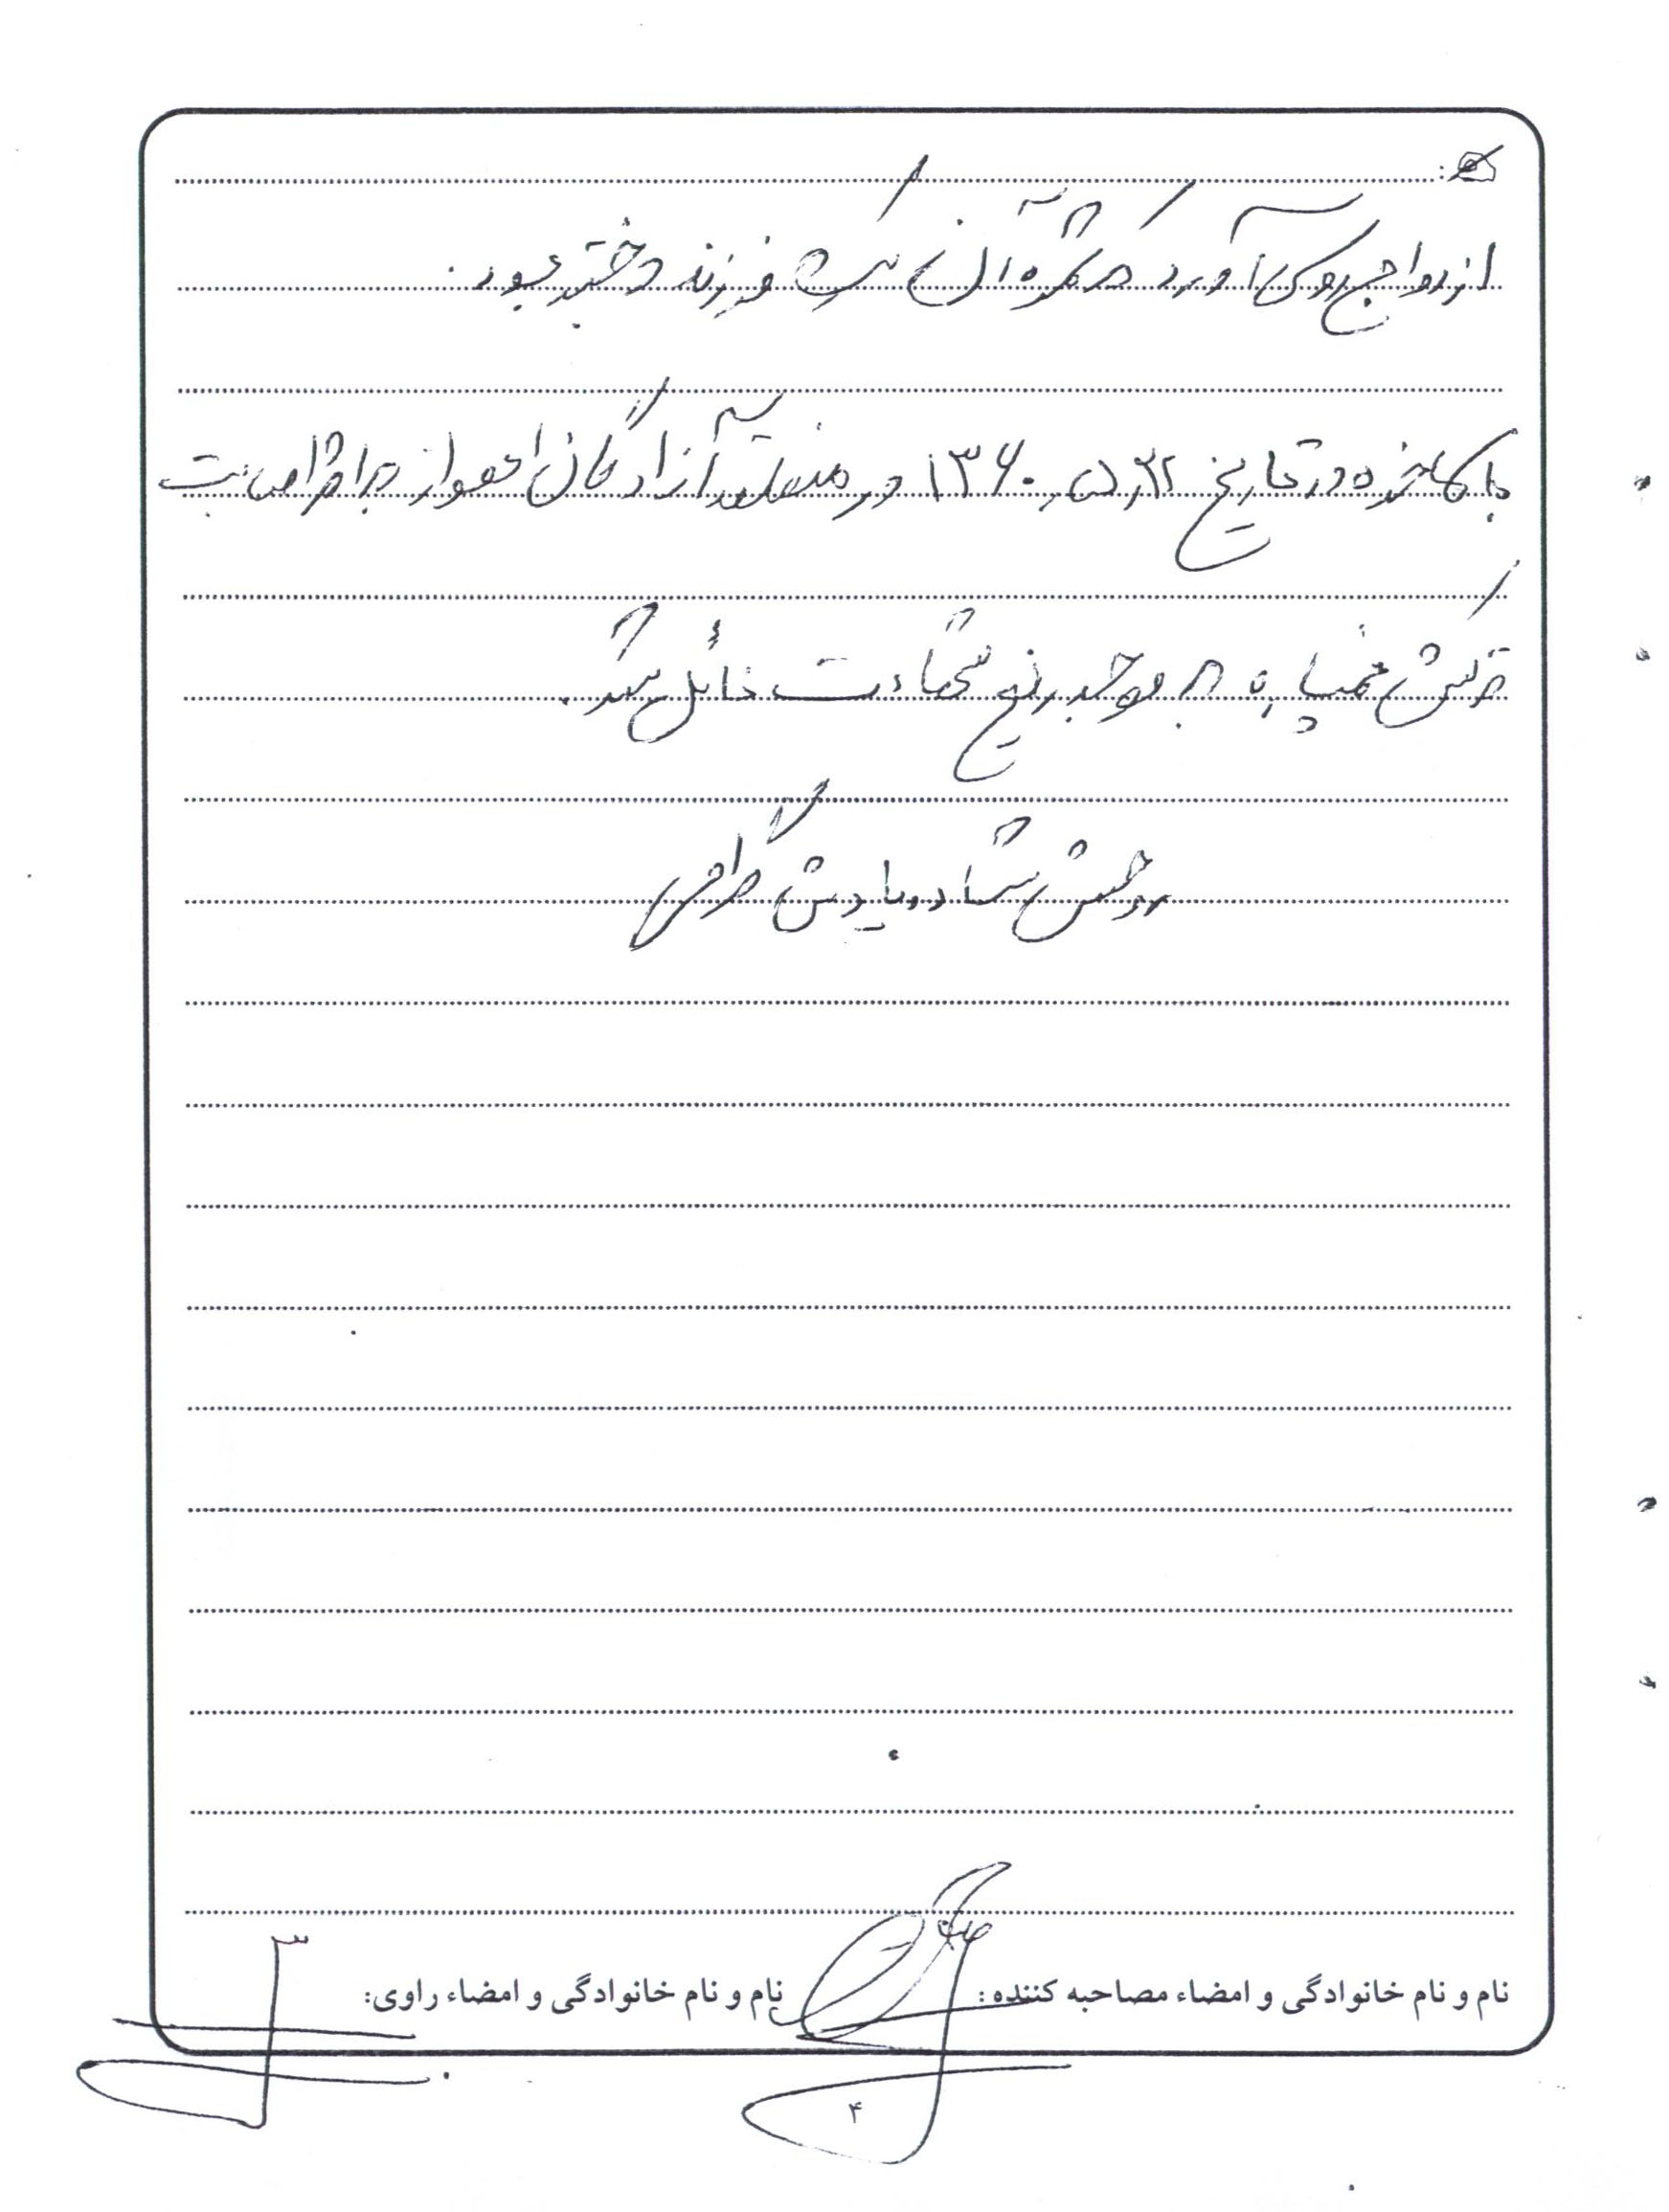 ازدواج روی آورد که ثمره آن یک فرزند دختر بود.
بالاخره در تاریخ ۱۳۶۰ در منطقه آزادگان اهواز بر اثر اصابت
ترکش خمپاره به درجه رفیع شهادت نائل شد.
روحش شاد و یادش گرامی
نام و نام خانوادگی و امضاء مصاحبه کننده: نام و نام خانوادگی و امضاء راوی:
۴